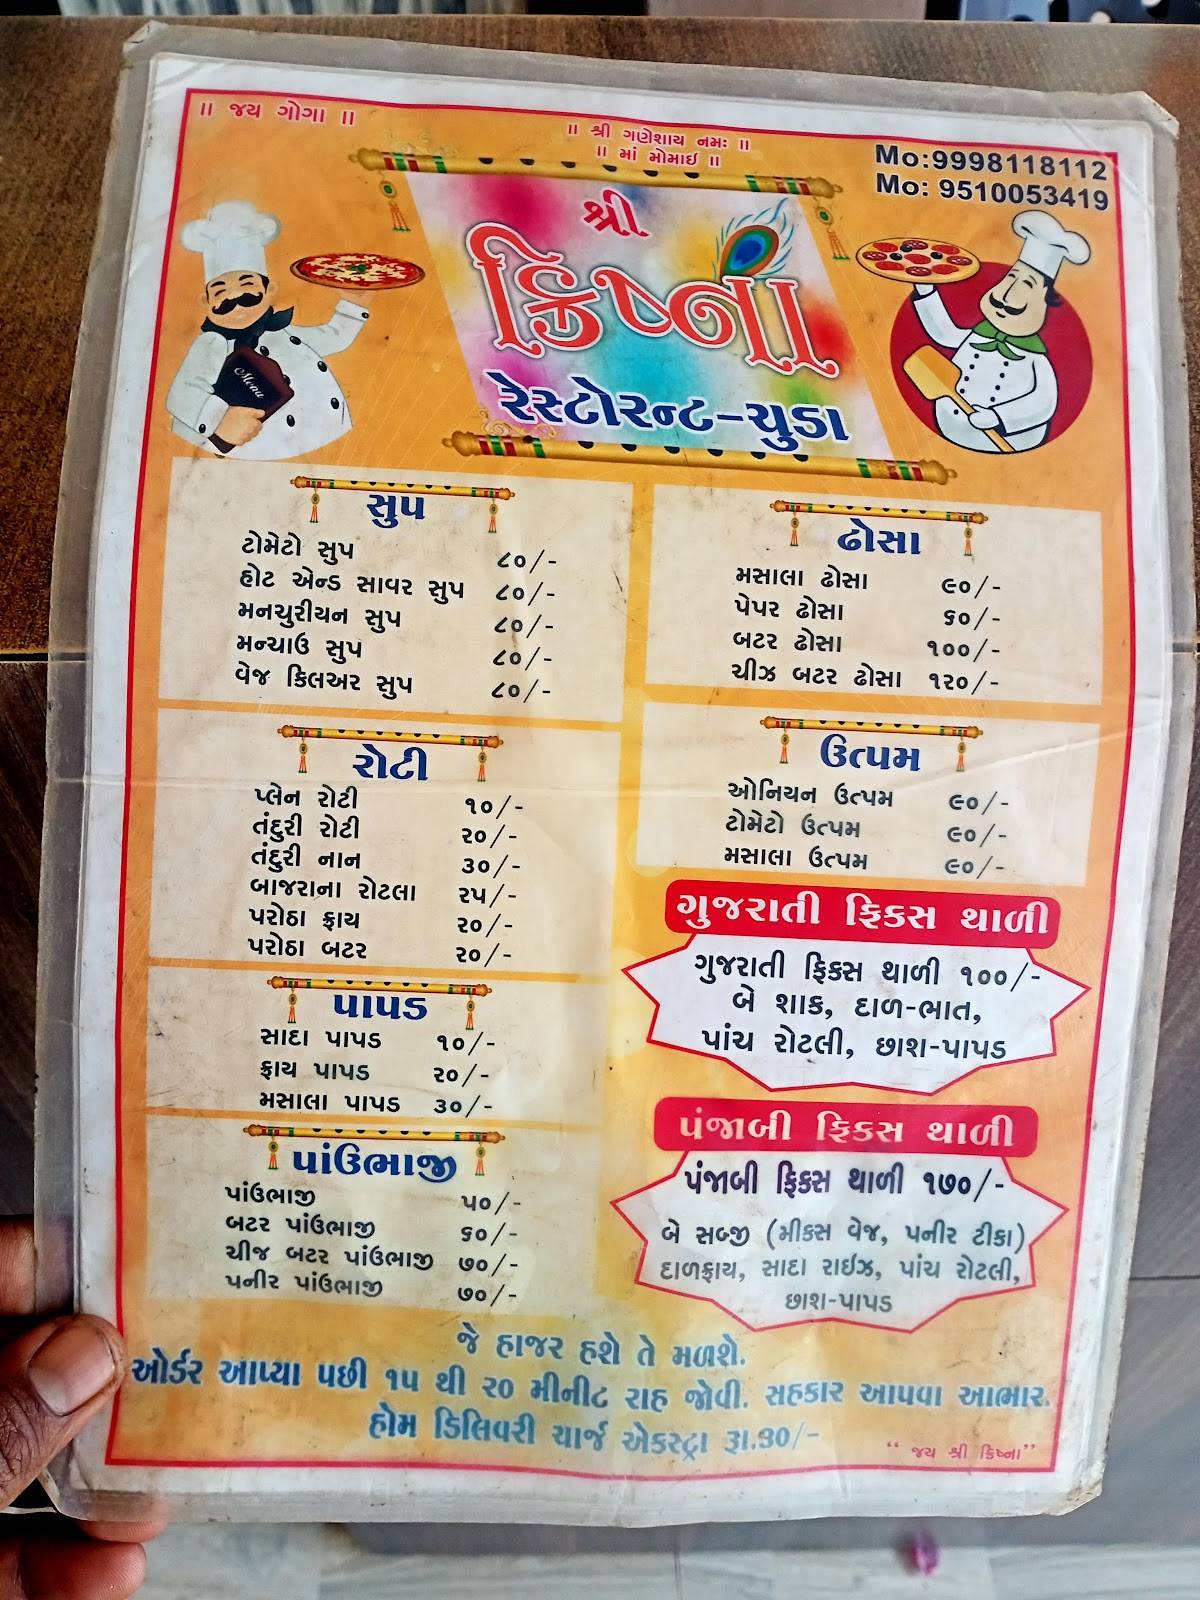 ॥ જય ગોગા ॥
॥ શ્રી ગણેશાય નમઃ ॥
॥ માં મોમાઇ ॥
Mo:9998118112
Mo: 9510053419
શ્રી
ક્રિષ્ના
રેસ્ટોરન્ટ-ચુડા
Menu
સુપ
ટોમેટો સુપ ૮૦/-
હોટ એન્ડ સાવર સુપ ૮૦/-
મનચુરીયન સુપ ૮૦/-
મન્ચાઉ સુપ ૮૦/-
વેજ કિલઅર સુપ ૮૦/-
રોટી
પ્લેન રોટી ૧૦/-
તંદુરી રોટી ૨૦/-
તંદુરી નાન ૩૦/-
બાજરાના રોટલા ૨૫/-
પરોઠા ફ્રાય ૨૦/-
પરોઠા બટર ૨૦/-
પાપડ
સાદા પાપડ ૧૦/-
ફ્રાય પાપડ ૨૦/-
મસાલા પાપડ ૩૦/-
પાંઉભાજી
પાંઉભાજી ૫૦/-
બટર પાંઉભાજી ૬૦/-
ચીજ બટર પાંઉભાજી ૭૦/-
પનીર પાંઉભાજી ૭૦/-
ઢોસા
મસાલા ઢોસા ૯૦/-
પેપર ઢોસા ૬૦/-
બટર ઢોસા ૧૦૦/-
ચીઝ બટર ઢોસા ૧૨૦/-
ઉત્પમ
ઓનિયન ઉત્પમ ૯૦/-
ટોમેટો ઉત્પમ ૯૦/-
મસાલા ઉત્પમ ૯૦/-
ગુજરાતી ફિક્સ થાળી
ગુજરાતી ફિક્સ થાળી ૧૦૦/-
બે શાક, દાળ-ભાત,
પાંચ રોટલી, છાશ-પાપડ
પંજાબી ફિક્સ થાળી
પંજાબી ફિક્સ થાળી ૧૭૦/-
બે સબ્જી (મીક્સ વેજ, પનીર ટીકા)
દાળફ્રાય, સાદા રાઈઝ, પાંચ રોટલી,
છાશ-પાપડ
જે હાજર હશે તે મળશે.
ઓર્ડર આપ્યા પછી ૧૫ થી ૨૦ મીનીટ રાહ જોવી. સહકાર આપવા આભાર.
હોમ ડિલિવરી ચાર્જ એક્સ્ટ્રા રૂા.૩૦/-
“ જય શ્રી ક્રિષ્ના”